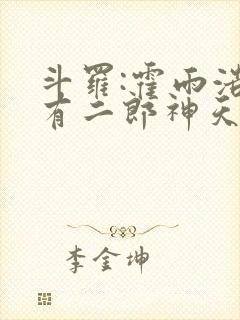 斗罗:霍雨浩
有二郎神天
李金坤